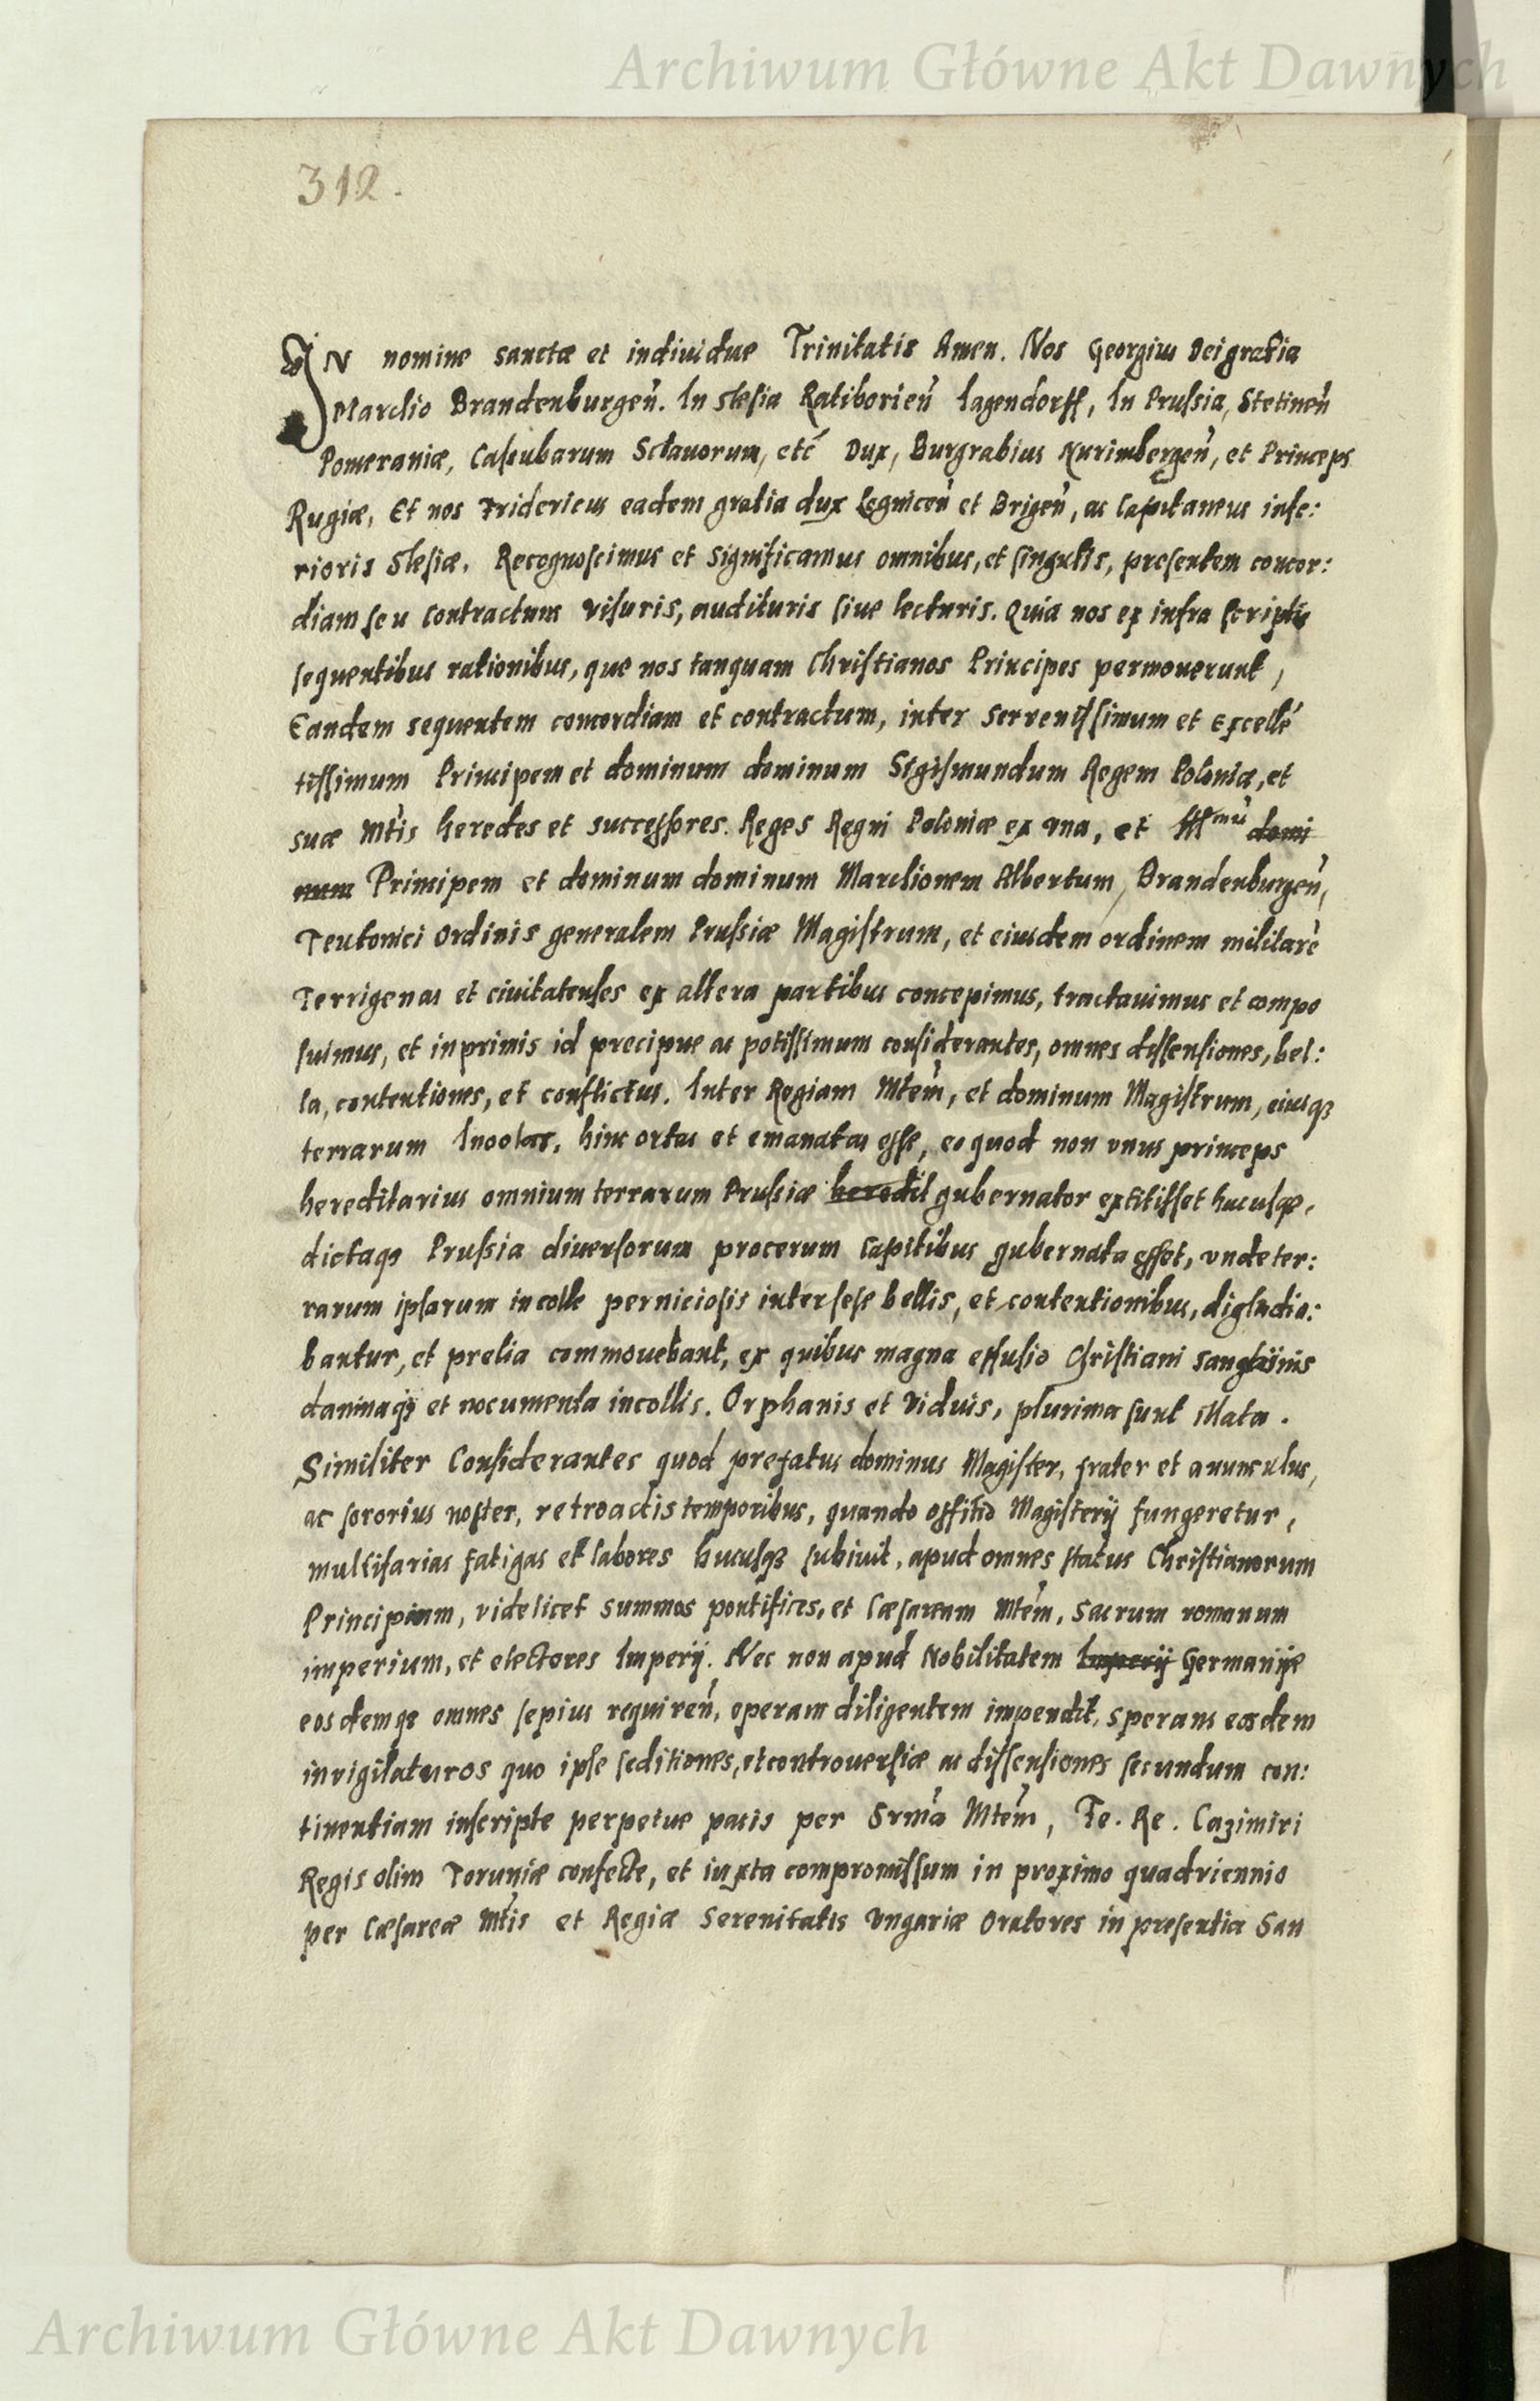 Archiwum Główne Akt Dawnych
312.
IN nomine sanctæ et individue Trinitatis Amen. Nos Georgius Dei gratia
Marchio Brandenburgen̄. In Slesia Ratiborien̄ Iagendorff, In Prussia, Stetinen̄
Pomeraniæ, Cassubarum Sclauorum, etc̄ Dux, Burgrabius Nurimbergen̄, et Princeps
Rugiæ, Et nos Fridericus eadem gratia dux Legnicen̄ et Brigen̄, ac Capitaneus infe:
rioris Slesiæ. Recognoscimus et significamus omnibus, et singulis, presentem concor:
diam seu contractum visuris, audituris siue lecturis. Quia nos ex infra scriptis
sequentibus rationibus, que nos tanquam Christianos Principes permouerunt,
Eandem sequentem concordiam et contractum, inter Serrenissimum et Excellē
tissimum Principem et dominum dominum Sigismundum Regem Poloniæ, et
suæ Mtis heredes et successores. Reges Regni Poloniæ ex una, et Illmū domi
num Principem et dominum dominum Marchionem Albertum, Brandenburgen̄,
Teutonici Ordinis generalem Prussiæ Magistrum, et eiusdem ordinem militarē
Terrigenas et ciuitatenses ex altera partibus concepimus, tractauimus et compo
suimus, et inprimis id precipue ac potissimum considerantes, omnes dissensiones, bel:
la, contentiones, et conflictus. Inter Regiam Mtem̄, et dominum Magistrum, eiusqȝ
terrarum Incolas, hinc ortas et emanatas esse, eo quod non vnus princeps
hereditarius omnium terrarum Prussiæ heredit gubernator extitisset hucusqȝ,
dictaqȝ Prussia diuersorum procerum capitibus gubernata esset, vnde ter:
rarum ipsarum incolle perniciosis inter sese bellis, et contentionibus, digladia:
bantur, et prelia commouebant, ex quibus magna effusio Christiani sanguinis
damnaqȝ et nocumenta incollis. Orphanis et Viduis, plurima sunt illata.
Similiter Considerantes quod prefatus dominus Magister, frater et auunculus,
ac sororius noster, retroactis temporibus, quando offitio Magisterij fungeretur,
multifarias fatigas et labores hucusqȝ subiuit, apud omnes status Christianorum
Principium, videlicet summos pontifices, et Cæsaream Mtem̄, Sacrum romanum
imperium, et electores Imperij. Nec non apud Nobilitatem Imperij Germanije
eosdemqe omnes sepius requiren̄, operam diligentem impendit, sperans eosdem
invigilaturos quo ipse seditiones, et controuersiæ ac dissensiones secundum con:
tinentiam inscripte perpetue pacis per Srmā Mtem̄, Fe. Re. Cazimiri
Regis olim Toruniæ confecte, et iuxta compromissum in proximo quadriennio
per Cæsareæ Mtis et Regiæ Serenitatis Vngariæ Oratores in presentia San
Archiwum Główne Akt Dawnych